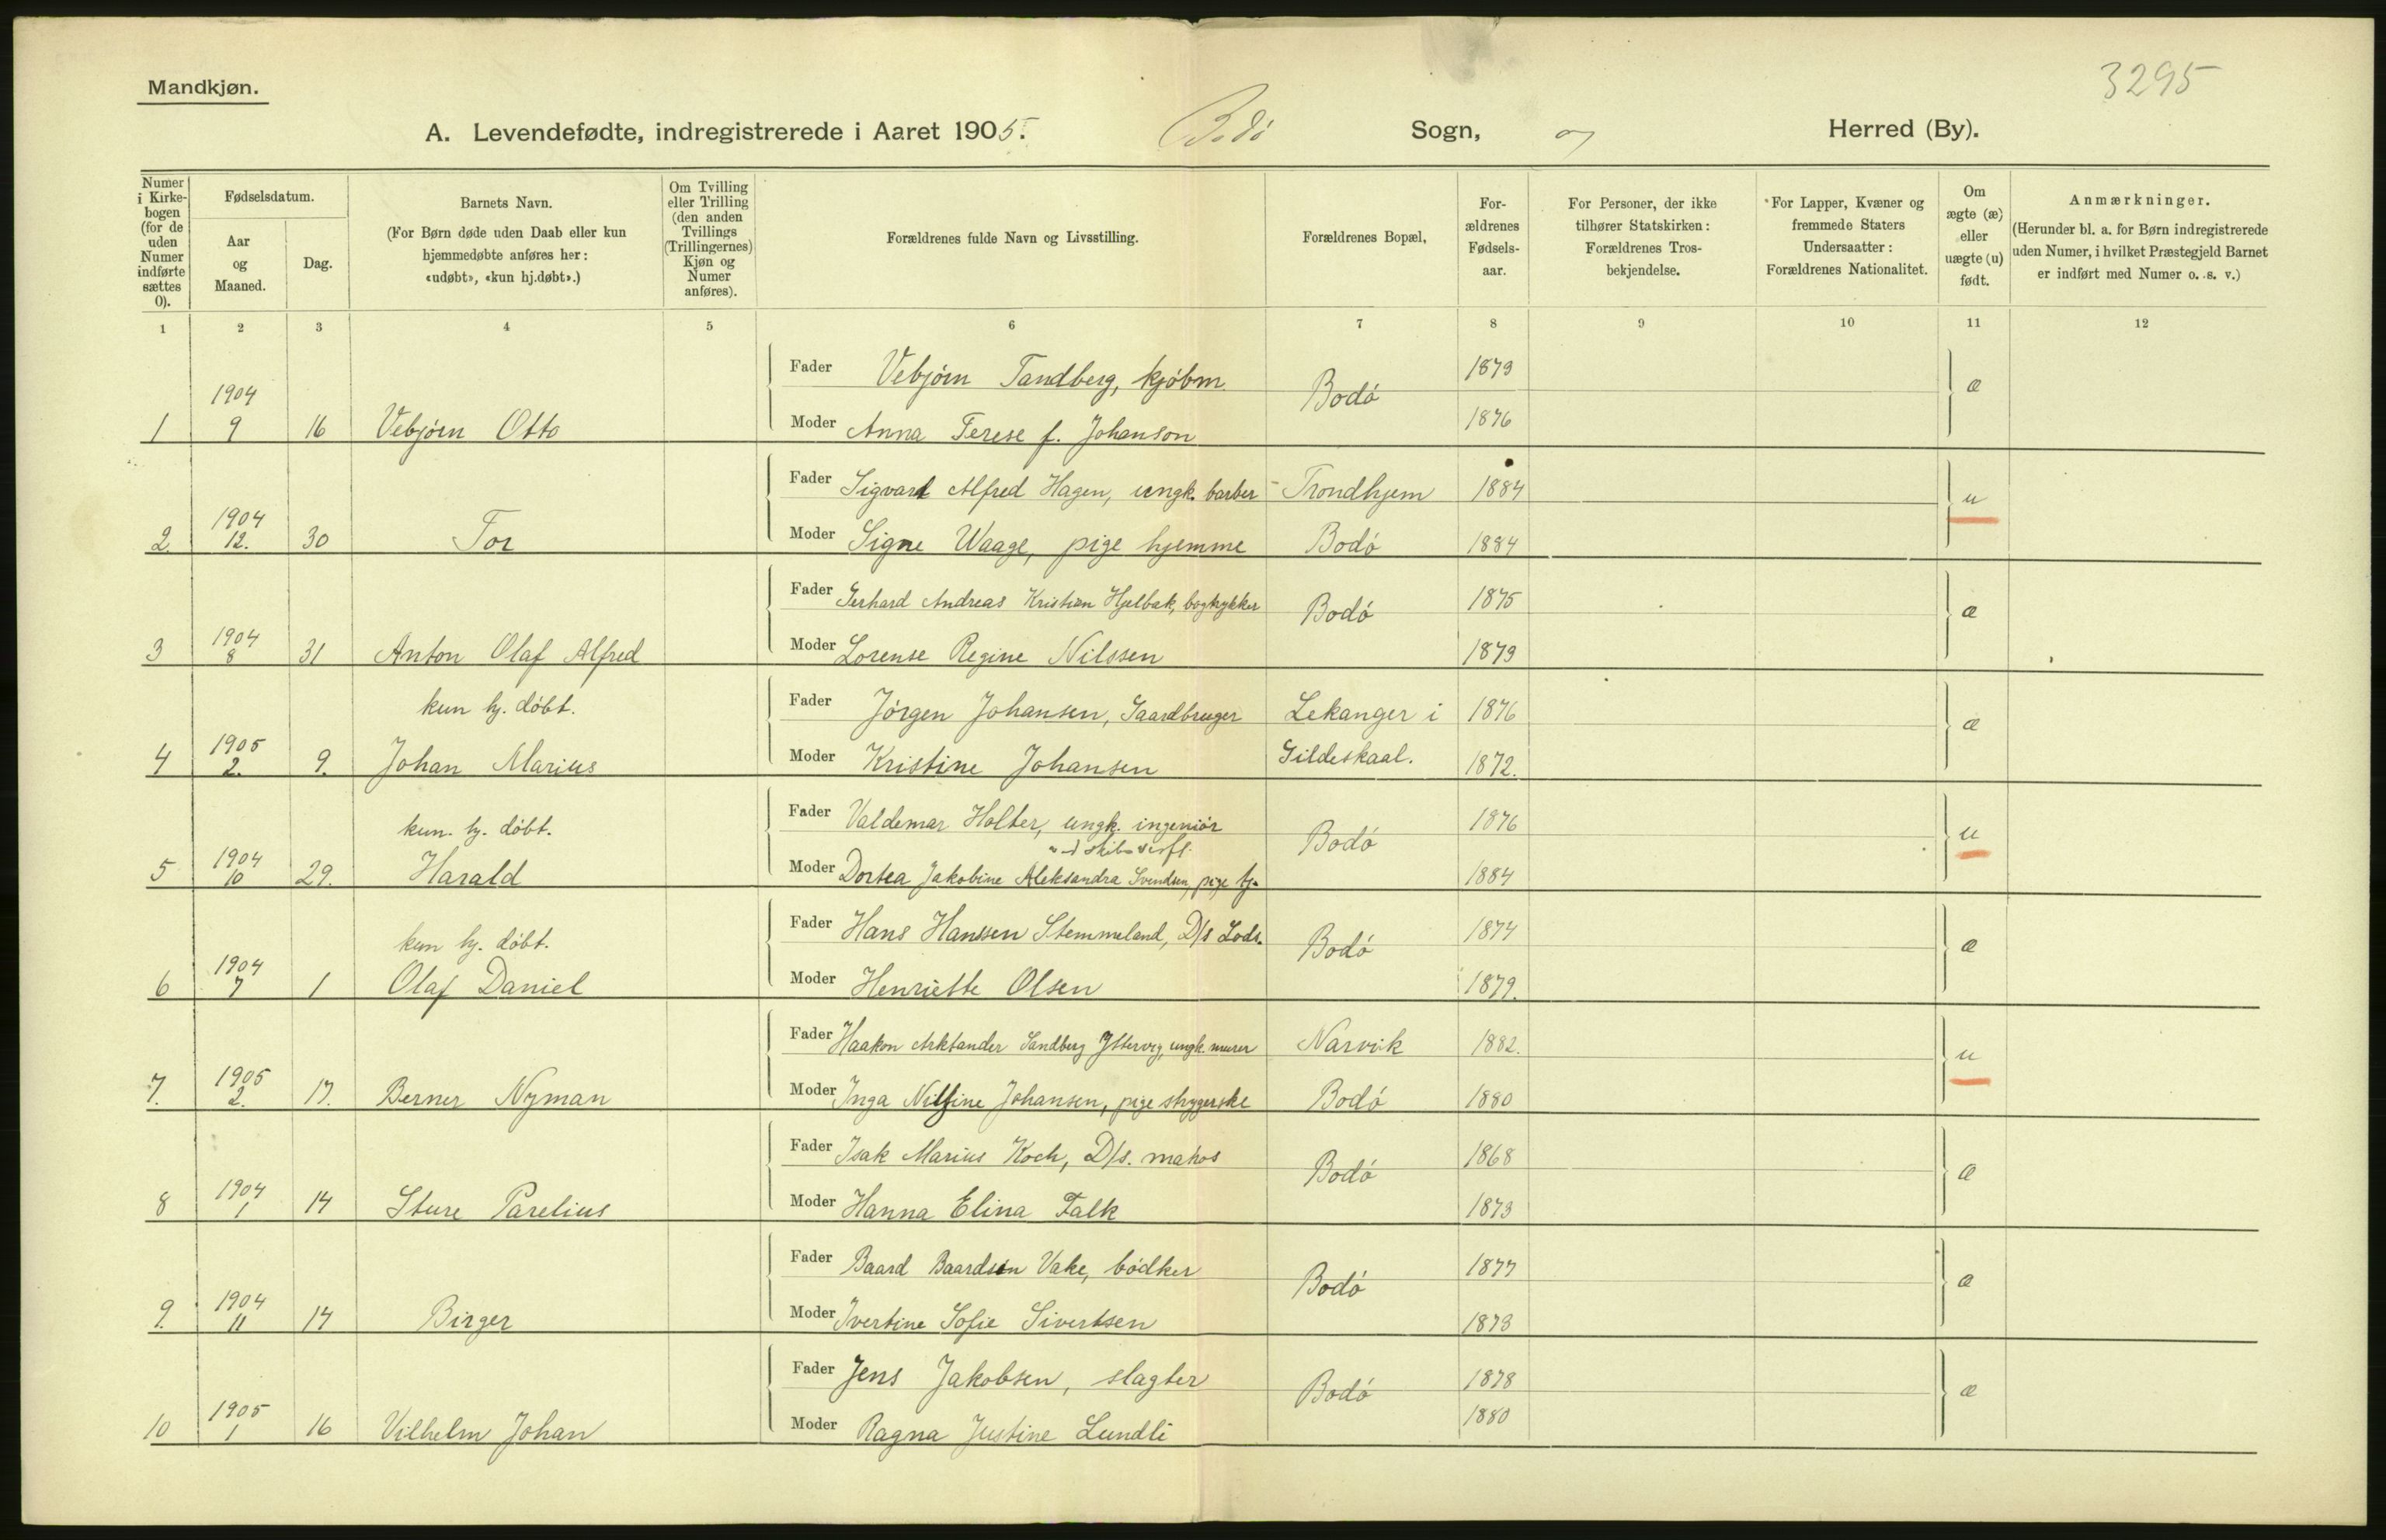 Mandkjøn.
3295
A. Levendefødte, indregistrerede i Aaret 1905. Bodø Sogn, og Herred (By).
Numer i Kirkebogen (for de uden Numer indførte sættes 0).
Fødselsdatum.
Aar og Maaned.
Dag.
Barnets Navn.
(For Børn døde uden Daab eller kun hjemmedøbte anføres her: «udøbt», «kun hj.døbt».)
Om Tvilling eller Trilling (den anden Tvillings (Trillingernes) Kjøn og Numer anføres).
Forældrenes fulde Navn og Livsstilling.
Forældrenes Bopæl,
Forældrenes Fødselsaar.
For Personer, der ikke tilhører Statskirken: Forældrenes Trosbekjendelse.
For Lapper, Kvæner og fremmede Staters Undersaatter: Forældrenes Nationalitet.
Om ægte (æ) eller uægte (u) født.
Anmærkninger.
(Herunder bl. a. for Børn indregistrerede uden Numer, i hvilket Præstegjeld Barnet er indført med Numer o. s. v.)
1 2 3 4 5 6 7 8 9 10 11 12
Fader Vebjørn Tandberg, kjøbm. 1879
1904 Bodø æ
1 9 16 Vebjørn Otto Moder Anna Terese f. Johanson 1876
Fader Sigvard Alfred Hagen, ungk. barber Trondhjem 1884 u
1904
2. 12. 30 Tor Moder Signe Waage, pige hjemme Bodø 1884
Fader Gerhard Andreas Kristian Hjelbak, bogtrykker Bodø 1875 æ
1904
3 8 31 Anton Olaf Alfred Moder Lorense Regine Nilssen 1879
kun hj. døbt. Fader Jørgen Johansen, Gaardbruger Lekanger i 1876 æ
1905
4 2. 9. Johan Marius Moder Kristine Johansen Gildeskaal. 1872.
kun hj. døbt. Fader Valdemar Holter, ungk. ingeniør Bodø 1876 u
1904
5 10 29. Harald Moder Dortea Jakobine Aleksandra Svendsen, pige hj. 1884
kun hj. døbt. Fader Hans Hanssen Stemmeland, D/s Lods. Bodø 1874 æ
1904
6 7 1 Olaf Daniel Moder Henriette Olsen 1879.
Fader Haakon Arktander Sandberg Yttervig, ungk. murer Narvik 1882. u
1905
7. 2. 17. Berner Nyman Moder Inga Nilsine Johansen, pige strygerske Bodø 1880
Fader Isak Marius Koch, D/s. matros Bodø 1868 æ
1904
8 1 14 Sture Parelius Moder Hanna Elina Falk 1873
Fader Baard Baardsen Vake, bødker Bodø 1877 æ
1904
9. 11 14 Birger Moder Ivertine Sofie Sivertsen 1873
Fader Jens Jakobsen, slagter Bodø 1878 æ
1905
10 1 16 Vilhelm Johan Moder Ragna Justine Lundli 1880